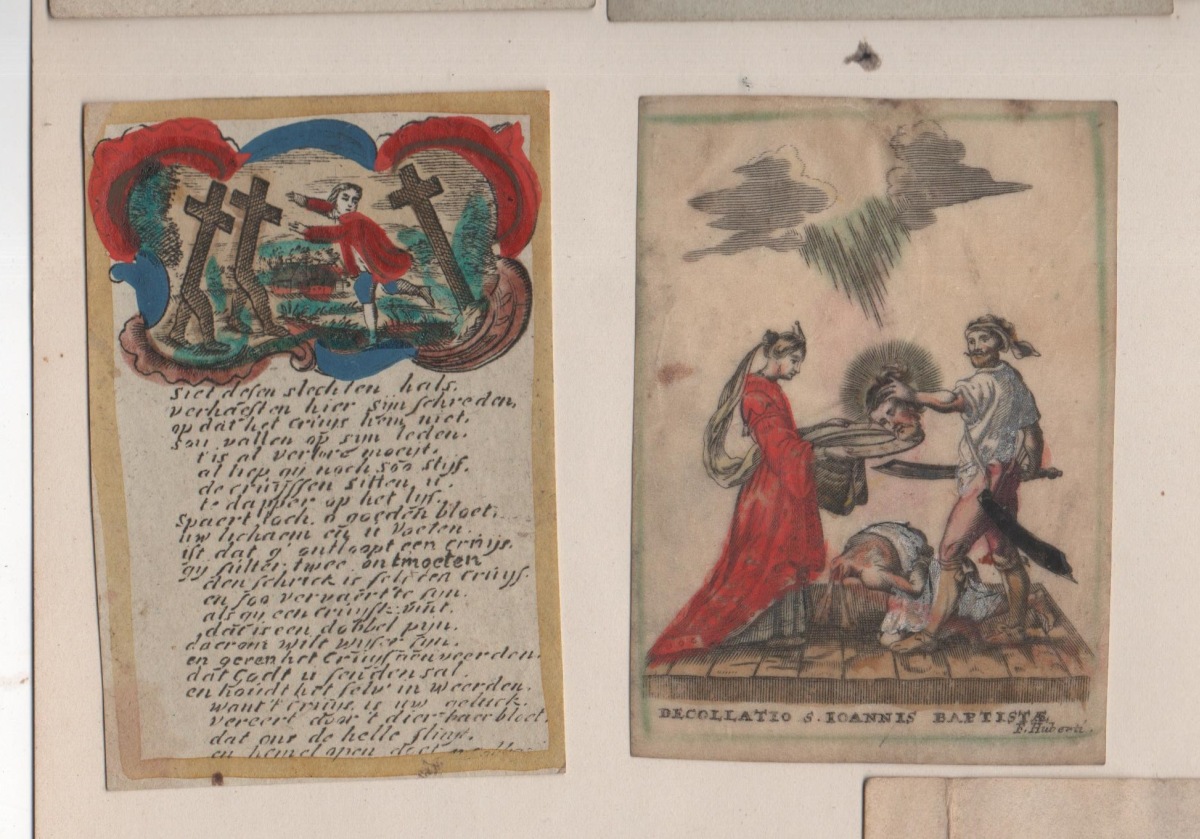 Siet desen slechten hals.
verhaesten hier sijn schreden,
op dat het cruijs hem niet.
sou vallen op sijn leden.
tis al verlore moeyt.
al liep gij noch soo stijf.
de cruijssen sitten u.
te dapper op het lijf.
Spaert toch. o goeden bloet.
uw lichaem en u voeten.
ist dat g' ontloopt een cruijs.
gij sulter twee ontmoeten
den schrick is self een cruijs.
en soo vervaert te sijn.
als gij een cruijs vint.
dat is een dobbel pijn.
daerom wilt wijser sijn.
en geren het Cruijs aenveerden.
dat Godt u senden sal.
en houdt het selv' in weerden.
want 't Cruijs is uw geluck.
vereert door 't dierbaer bloet.
dat ons de helle sluijt.
en hemel open doet
DECOLLATIO S. IOANNIS BAPTISTÆ.
F. Huberti.